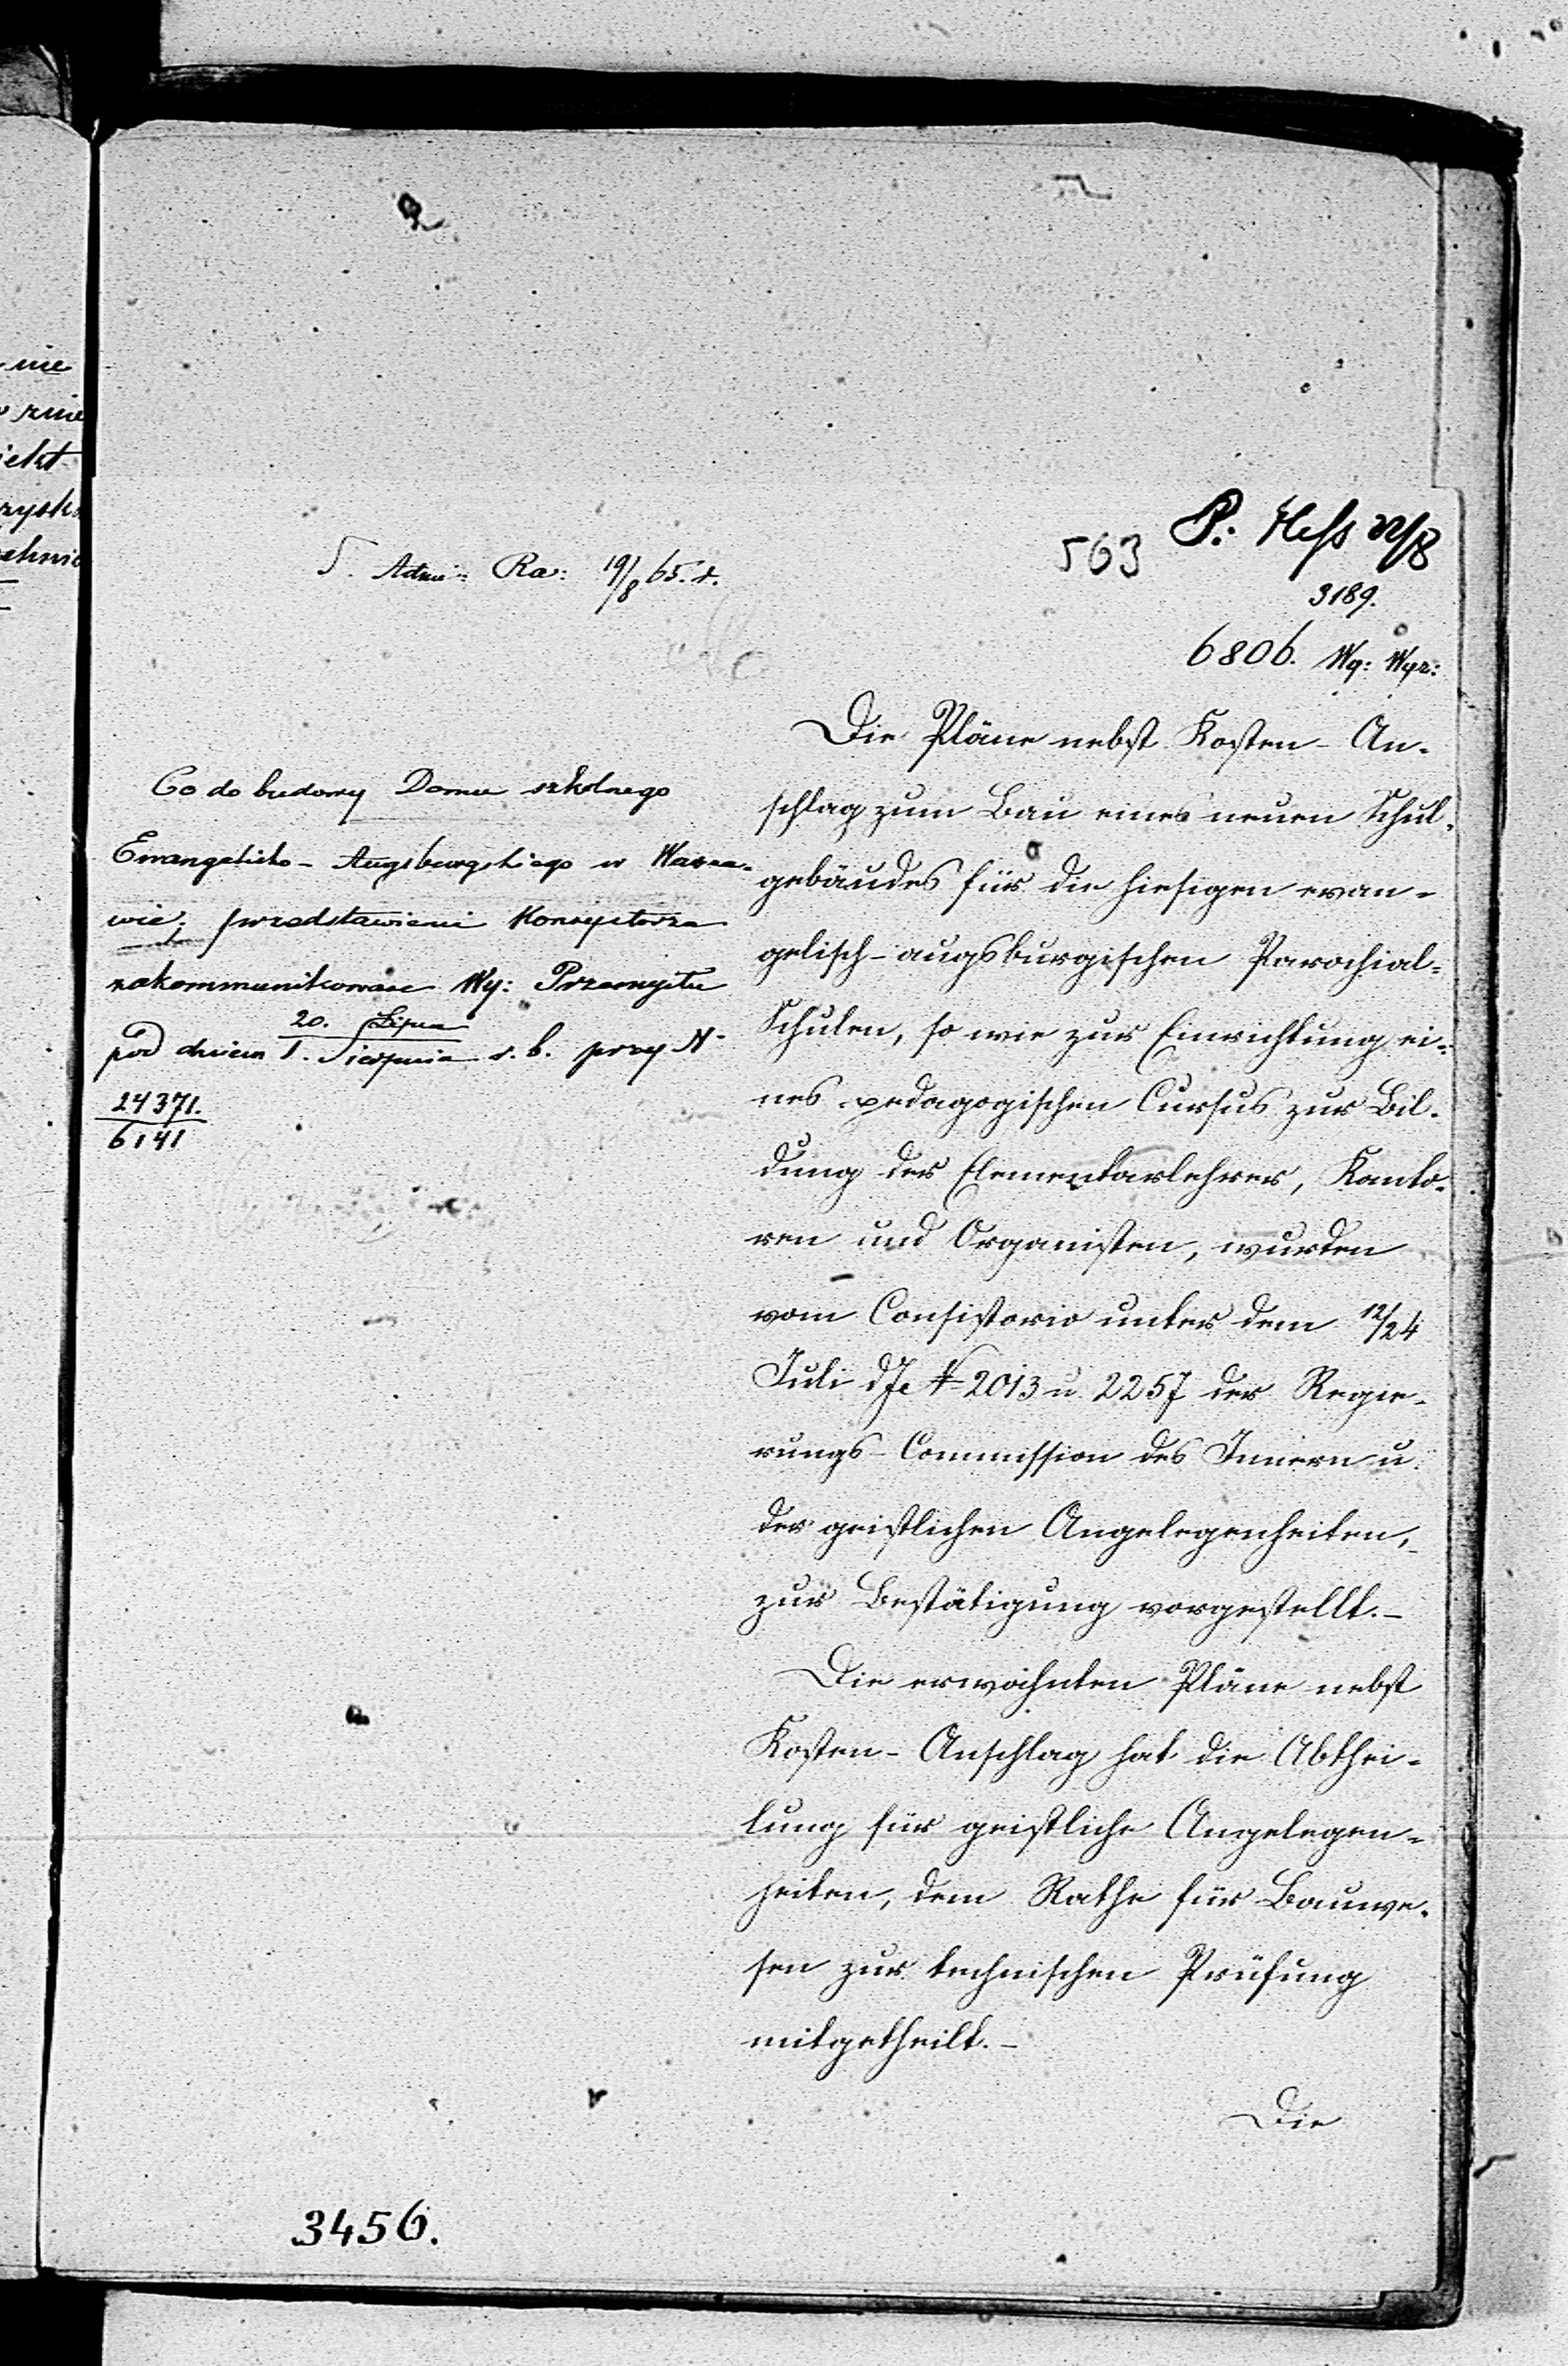 563 P: Hess 22/8
S. Admi: Ra: 19/8 65. r.
3189.
6806. Wy: Wyz:
Co do budowy Domu szkolnego
Ewangelicko-Augsburgskiego w Warsza-
wie, przedstawienie Konsystorza
zakommunikowane Wy: Przemysłu
pod dniem 20. Lipca / 1. Sierpnia r. b. przy N-
24371.
6141
Die Pläne nebst Kosten-An-
schlag zum Bau eines neuen Schul-
gebäudes für die hiesigen evan-
gelisch-augsburgischen Parochial-
Schulen, so wie zur Einrichtung ei-
nes pedagogischen Cursus zur Bil-
dung der Elementarlehrer, Kanto-
ren und Organisten, wurden
vom Consistorio unter dem 12/24
Juli d. J. N 2013 u 2257 der Regie-
rungs-Commission des Innern u.
der geistlichen Angelegenheiten,
zur Bestätigung vorgestellt.-
Die erwähnten Pläne nebst
Kosten-Anschlag hat die Abthei-
lung für geistliche Angelegen-
heiten, dem Rathe für Bauwe-
sen zur technischen Prüfung
mitgetheilt.-
Die
3456.